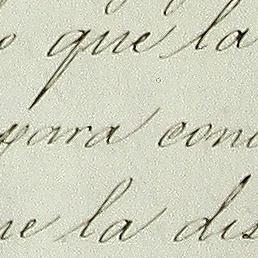 que la
para con
la dis